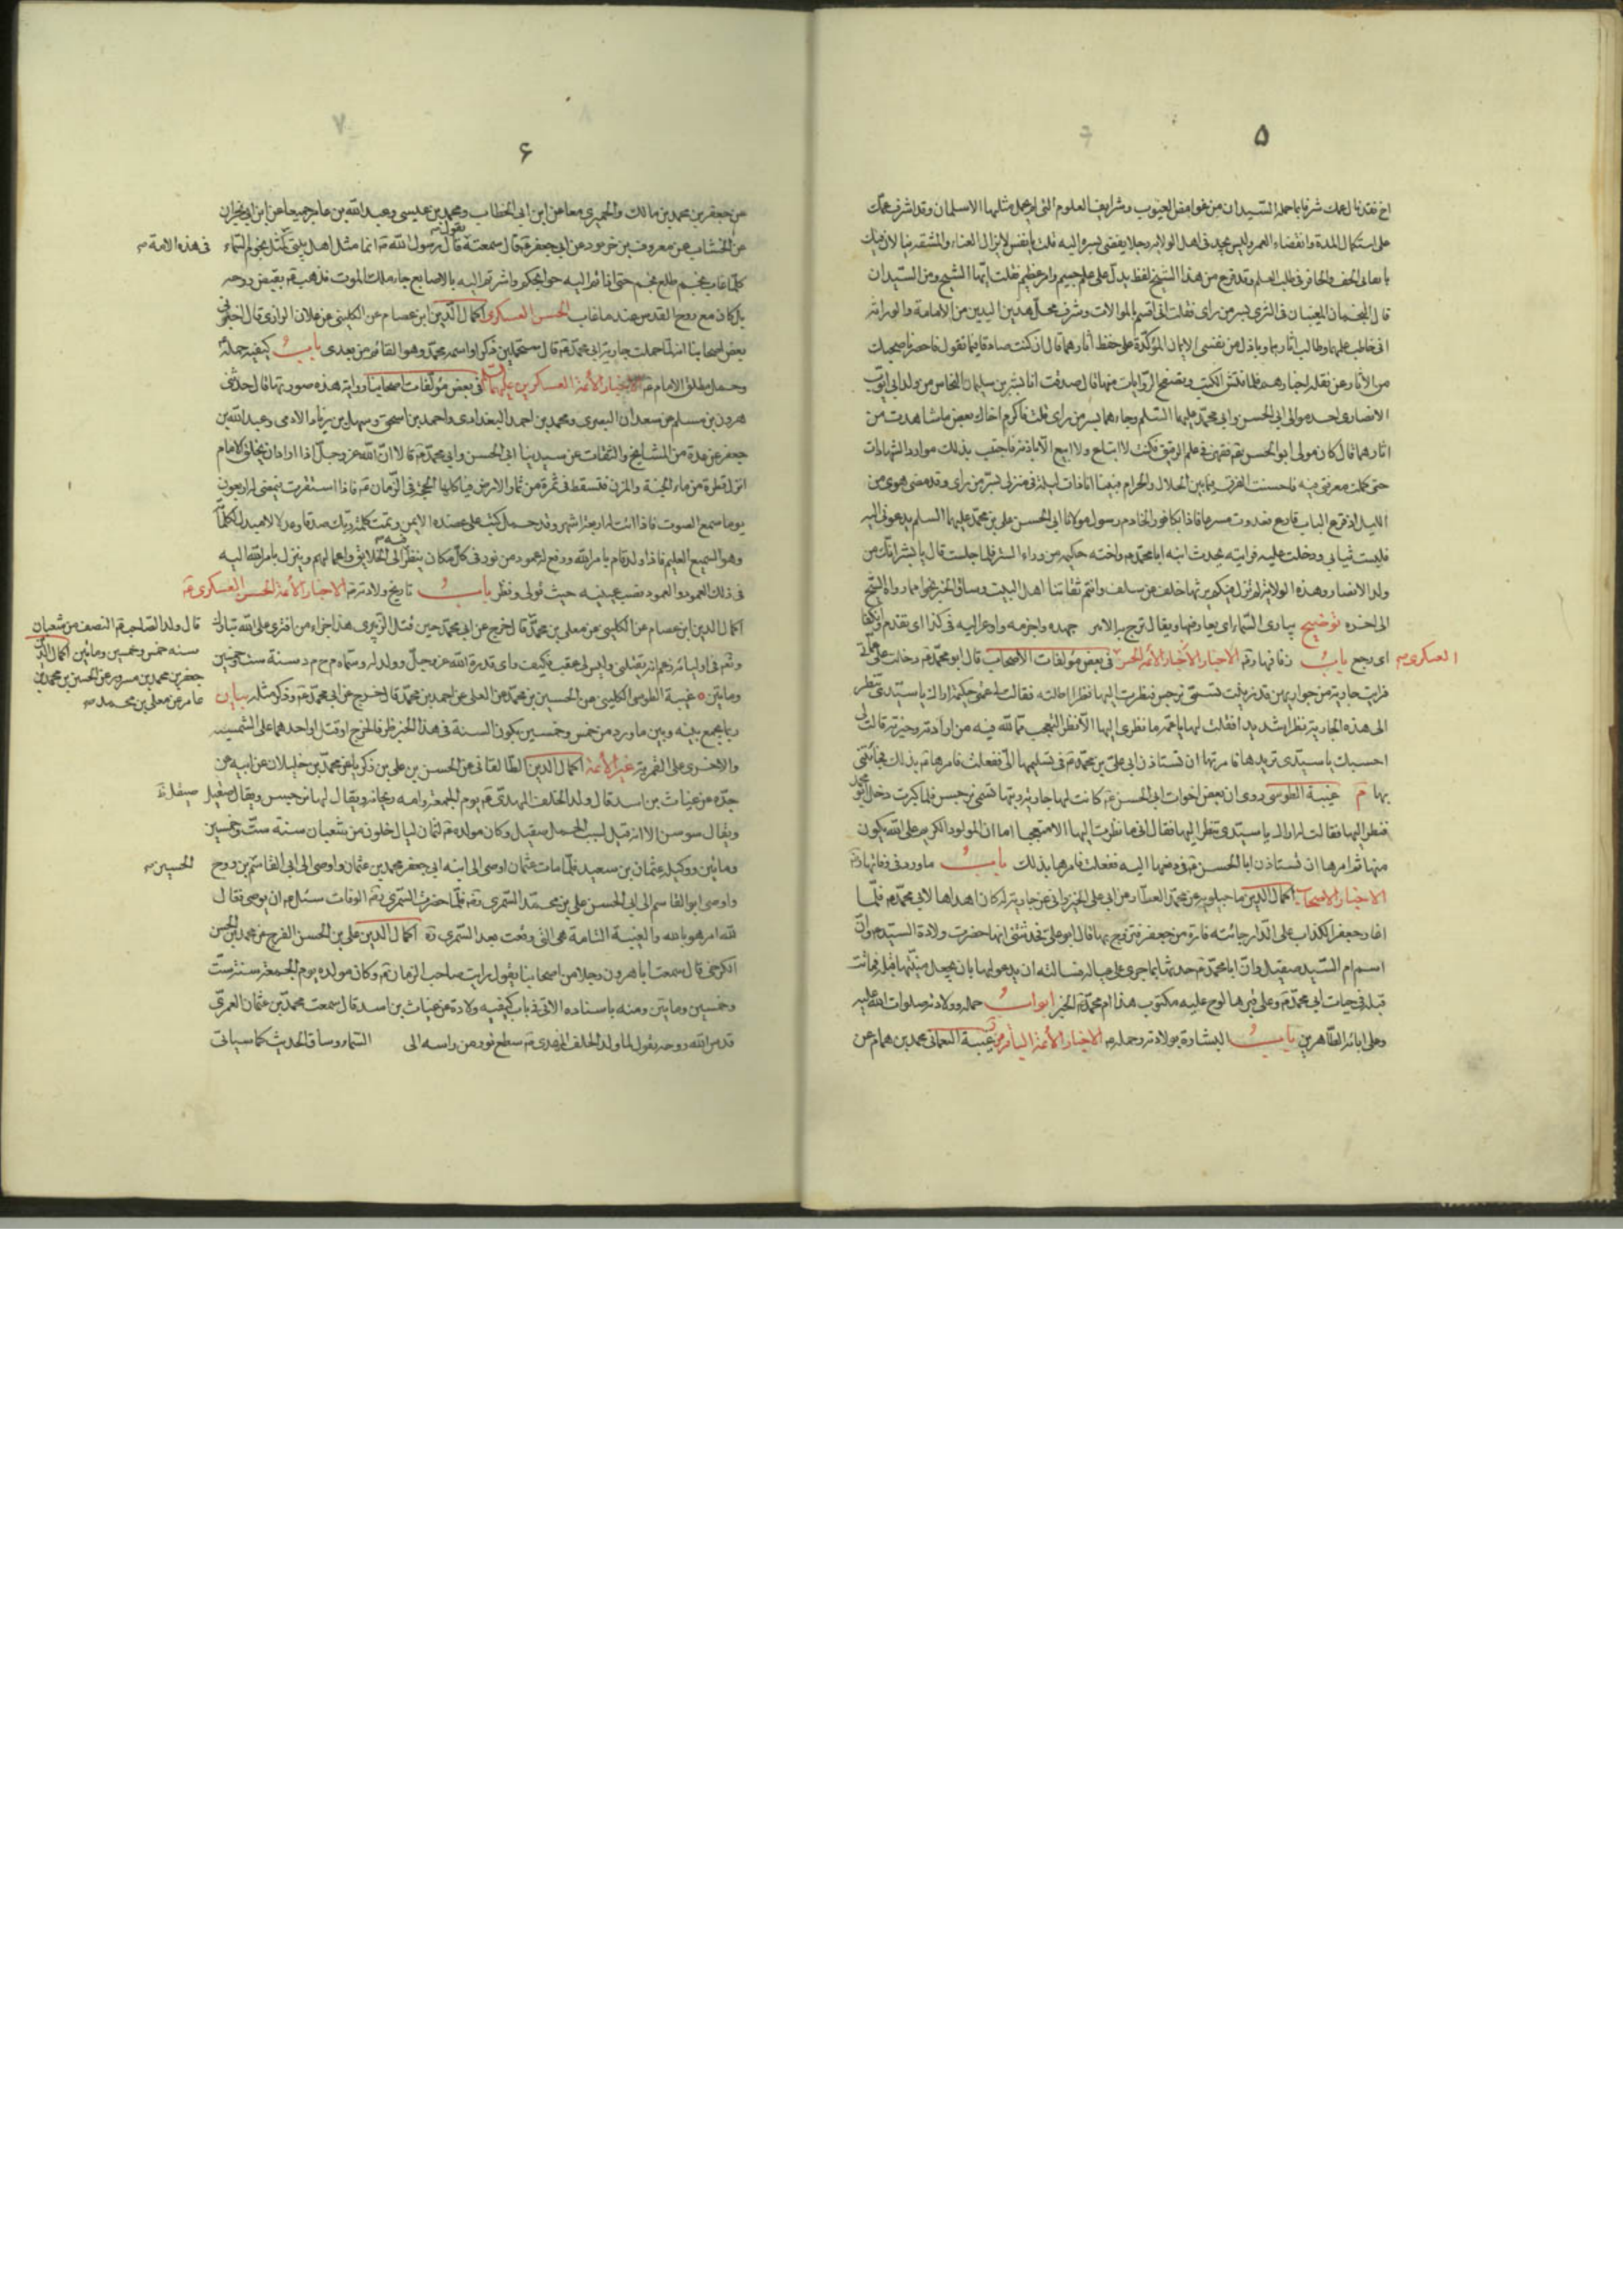 ۵
اخ فقد نال عمك شرفا باحمله السيدان من غوامض الغيوب وشرايف العلوم التى لم يحمل مثلها الا سلمان وقد اشرف عمك
على استكمال المدة وانقضاء العمر وليس يجد فى اهل الولاية رجلا يفضى بسره اليه قلت يا نفس لا يزال العناء والمشقة ينالان منك
باتعابى الخف والحافر فى طلب العلم وقد قرع من هذا الشيخ لفظ يدل على علم جسيم وامر عظيم فقلت ايها الشيخ ومن السيدان
قال النجمان المغيبان فى الثرى بسر من راى فقلت انى اقسم بالموالات وشرف محل هذين السيدين من الامامة والوراثة
انى خاطب علمهما وطالب اثارهما وباذل من نفسى الايمان المؤكدة على حفظ اثارهما قال ان كنت صادقا فيما تقول فاحضر ما صحبك
من الاثار عن نقلة اخبارهم فلما فتش الكتب وتصفح الروايات منها قال صدقت انا بشر بن سليمان النخاس من ولد ابى ايوب
الانصارى احد موالى ابى الحسن وابى محمد عليهما السلم وجارهما بسر من راى قلت فاكرم اخاك ببعض ما شاهدت من
اثارهما قال كان مولى ابو الحسن فقهنى فى علم الرقيق فكنت لا ابتاع ولا ابيع الا باذنه فاجتنب بذلك موارد الشبهات
حتى كملت معرفتى فيه فاحسنت الفرق فيما بين الحلال والحرام فبينما انا ذات ليلة فى منزلى بسر من راى وقد مضى هوى من
الليل اذ قرع الباب قارع فعدوت مسرعا فاذا بكافور الخادم رسول مولانا ابى الحسن على بن محمد عليهما السلم يدعونى اليه
فلبست ثيابى ودخلت عليه فرايته يحدث ابنه ابا محمد واخته حكيمه من وراء الستر فلما جلست قال يا بشر انك من
ولد الانصار وهذه الولاية لم تزل فيكم يرثها خلف عن سلف وانتم ثقاتنا اهل البيت وساق الخبر نحوا مما رواه الشيخ
الى اخره توضيح يبارى السماء اى يعارضها ويقال برح به الامر جهده
العسكرى اى رجع باب الاخبار الائمة الحسن فى بعض مؤلفات الاصحاب قال ابو محمد دخلت على
فرايت جارية من جواريهن قد زينت تسمى نرجس فنظرت اليها نظرا اطالته فقالت له عمتى حكيمة اراك يا سيدى تنظر
الى هذه الجارية نظرا شديدا فقلت لها يا عمة ما نظرى اليها الا نظر التعجب مما لله فيه من ارادته وخيرته قالت لى
احسبك يا سيدى تريدها فامرتها ان تستاذن ابى على بن محمد فى تسليمها الى ففعلت فامرها بذلك فجائتنى
بها غيبة الطوسى روى ان بعض اخوات ابى الحسن كانت لها جارية ربتها تسمى نرجس فلما كبرت دخل ابو محمد
فنظر اليها فقالت له اراك يا سيدى تنظر اليها فقال انى ما نظرت اليها الا متعجبا اما ان المولود الكريم على الله يكون
منها ثم امرها ان تستاذن ابا الحسن فى دفعها اليه ففعلت فامرها بذلك باب ما ورد فى وفاتها
الاخبار الاصحاب اكمال الدين ماجيلويه عن محمد العطار عن ابى على الخيزرانى عن جارية له كان اهداها لابى محمد فلما
اغار جعفر الكذاب على الدار جائته فارة من جعفر فتزوج بها قال ابو على فحدثتنى انها حضرت ولادة السيد وان
اسم ام السيد صقيل وان ابا محمد حدثها بما جرى على عياله فسالته ان يدعو لها بان يجعل منيتها قبله فماتت
قبله فى حيات ابى محمد وعلى قبرها لوح عليه مكتوب هذا ام محمد الخبر ابواب حمله وولادته صلوات الله عليه
وعلى ابائه الطاهرين باب البشارة بولادته وحمله الاخبار الائمة الباقر غيبة النعمانى محمد بن همام عن
۶
عن جعفر بن محمد بن مالك والحميرى معا عن ابن ابى الخطاب ومحمد بن عيسى وعبد الله بن عامر جميعا عن ابن ابى نجران
عن الخشاب عن معروف بن خربوذ عن ابى جعفر قال سمعته يقول قال رسول الله انما مثل اهل بيتى كمثل نجوم السماء فى هذه الامة
كلما غاب نجم طلع نجم حتى اذا مددتم اليه حواجبكم واشرتم اليه بالاصابع جاء ملك الموت فذهب به
الحسن العسكرى اكمال الدين ابن عصام عن الكلينى عن علان الرازى قال اخبرنى
بعض اصحابنا انه لما حملت جارية ابى محمد قال ستحملين ذكرا واسمه محمد وهو القائم من بعدى باب كيفية حمله
وحمل مطلق الامام الاخبار الائمة العسكريين عليهما السلم فى بعض مؤلفات اصحابنا رواية هذه صورتها قال حدثنى
هرون بن مسلم عن سعدان البصرى ومحمد بن احمد البغدادى واحمد بن اسحق وسهل بن زياد الادمى وعبد الله بن
جعفر عن عدة من المشايخ والثقات عن سيدينا ابى الحسن وابى محمد قالا ان الله عز وجل اذا اراد ان يخلق الامام
انزل قطرة من ماء الجنة فى المزن فتسقط فى ثمرة من ثمار الارض فياكلها الحجة فى الزمان فاذا استقرت فيمضى له اربعون
يوما سمع الصوت فاذا اتت له اربعة اشهر وقد حمل كتب على عضده الايمن وتمت كلمة ربك صدقا وعدلا لا مبدل لكلماته
وهو السميع العليم فاذا ولد قام بامر الله ورفع له عمود من نور فى كل مكان ينظر فيه الى الخلايق واعمالهم وينزل بامر الله اليه
فى ذلك العمود والعمود نصب عينيه حيث تولى ونظر باب تاريخ ولادته الاخبار الائمة الحسن العسكرى
اكمال الدين ابن عصام عن الكلينى عن معلى بن محمد قال خرج عن ابى محمد حين قتل الزبيرى هذا جزاء من افترى على الله تبارك
وتعالى فى اوليائه زعم انه يقتلنى وليس لى عقب فكيف راى قدرة الله عز وجل وولد له وسماه م ح م د سنة ست وخمسين
ومايتين غيبة الطوسى الكلينى عن الحسين بن محمد عن المعلى عن احمد بن محمد قال خرج عن ابى محمد وذكر مثله بيان
ربما يجمع بينه وبين ما ورد من خمس وخمسين بكون السنة فى هذا الخبر ظرفا لخرج او قتل او احدهما على الشمسيه
والاخرى على القمرية غير الائمة اكمال الدين الطالقانى عن الحسن بن على بن زكريا عن محمد بن خليلان عن ابيه عن
جده عن غياث بن اسد قال ولد الخلف المهدى يوم الجمعة وامه ريحانه ويقال لها نرجس ويقال صقيل
ويقال سوسن الا انه قيل لسبب الحمل صقيل وكان مولده لثمان ليال خلون من شعبان سنة ست وخمسين
ومائتين ووكيله عثمان بن سعيد فلما مات عثمان اوصى الى ابنه ابى جعفر محمد بن عثمان واوصى الى ابى القاسم بن روح الحسين
واوصى ابو القاسم الى ابى الحسن على بن محمد السمرى فلما حضرت السمرى الوفات سئل ان يوصى فقال
لله امر هو بالغه والغيبة التامة هى التى وقعت بعد السمرى اكمال الدين على بن الحسن الفرج عن محمد بن الحسن
الكرخى قال سمعت ابا هرون رجلا من اصحابنا يقول رايت صاحب الزمان وكان مولده يوم الجمعة سنة ست
وخمسين ومايتين ومنه باسناده الاتى فى باب كيفيه ولادته عن غياث بن اسد قال سمعت محمد بن عثمان العمرى
قدس الله روحه يقول لما ولد الخلف المهدى سطع نور من راسه الى السماء وساق الحديث كما سياتى
قال ولد الصاحب النصف من شعبان
سنه خمس وخمسين ومائتين اكمال الدين
جعفر بن محمد بن مسرور عن الحسين بن محمد بن
عامر عن معلى بن محمد